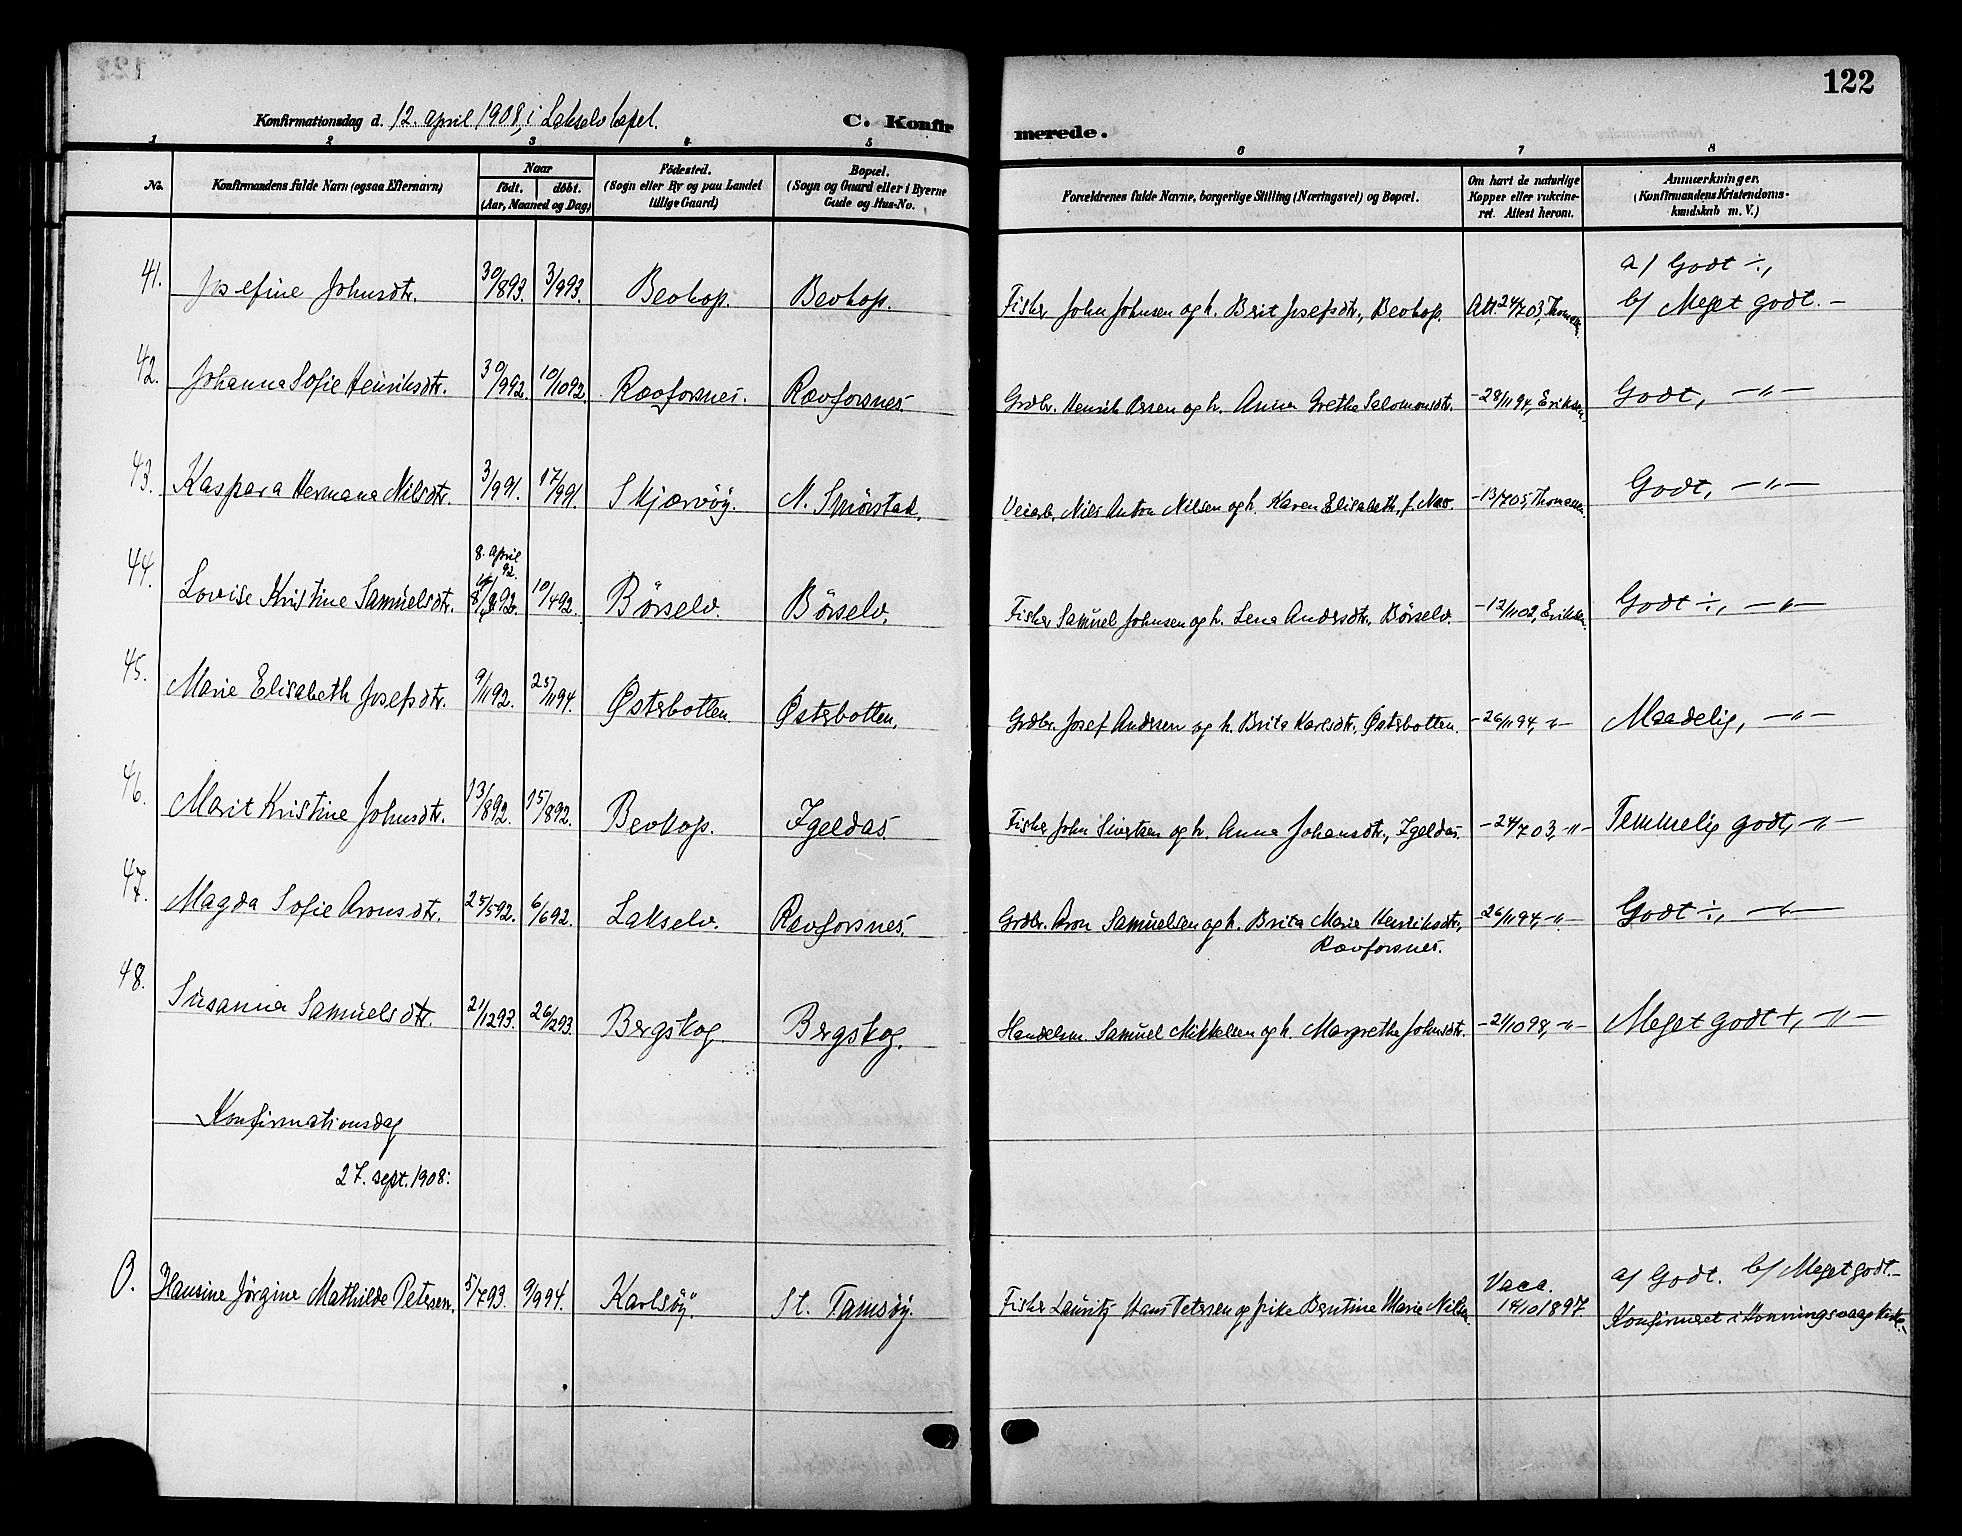 122
Konfirmationsdag d. 12. april 1908, i Lakselv kapel.
C. Konfirmerede.
1 2 3 4 5 6 7 8
No.
Konfirmandens fulde Navn (ogsaa Efternavn)
Naar
født. døbt.
(Aar, Maaned og Dag)
Fødested.
(Sogn eller By og paa Landet
tillige Gaard)
Bopæl.
(Sogn og Gaard eller i Byerne
Gade og Hus-No.
Forældrenes fulde Navne, borgerlige Stilling (Næringsvei) og Bopæl.
Om havt de naturlige
Kopper eller vakcine-
ret. Attest herom.
Anmærkninger.
(Konfirmandens Kristendoms-
kundskab m. V.)
41. Josefine Johnsdtr. 30/893. 3/993. Bevkop. Bevkop. Fisker John Johnsen og h. Berit Josefsdtr., Bevkop. Att. 24/703, Thomassen a/ Godt ÷,
b/ Meget godt. —
42. Johanna Sofie Henriksdtr. 30/992. 10/1092. Rævfosnes. Rævfosnes. Grdbr. Henrik Olsen og h. Anna Grethe Salomonsdtr. - 28/1194, Eriksen. Godt, — " —
43. Kaspara Hermana Nilsdtr. 3/991. 17/991. Skjærvöy. N. Smörstad. Veiarb. Nils Anton Nilsen og h. Karen Elisabeth, f. Næs. - 13/705, Thomassen. Godt, — " —
8. april
92.
44. Lovise Kristine Samuelsdtr. 10/492. Börselv. Börselv. Fisker Samuel Johnsen og h. Lena Andersdtr., Börselv. - 12/1102, Eriksen. Godt ÷, — " —
45. Marie Elisabeth Josefsdtr. 9/1192. 25/1194. Østerbotten. Østerbotten. Grdbr. Josef Andersen og h. Brita Karlsdtr. Østerbotten. - 26/1194, - " - Maadelig, — " —
46. Marit Kristine Johnsdtr. 13/892. 15/892. Bevkop. Igeldas Fisker John Sivertsen og h. Anna Johansdtr., Igeldas. - 24/703, - " - Temmelig godt, — " —
47. Magda Sofie Aronsdtr. 25/592. 6/692. Lakselv. Rævfosnes. Grdbr. Aron Samuelsen og h. Brita Marie Henriksdtr.,
Rævfosnes. - 26/1194, - " - Godt ÷, — " —
48. Susanna Samuelsdtr. 21/1293. 26/1293. Bergskog. Bergskog. Handelsm. Samuel Mikkelsen og h. Margrethe Johnsdtr. - 21/1098, - " - Meget godt +, — " —
Konfirmationsdag
27. sept. 1908:
0. Hansine Jörgine Mathilde Petersen. 5/793. 9/994. Karlsöy. St. Tamsöy. Fisker Lauritz Hans Petersen og pike Bentine Marie Nilsen. Vacc.
18/101897. a/ Godt. b/ Meget godt. —
Konfirmeret i Honningsvaag kirke.